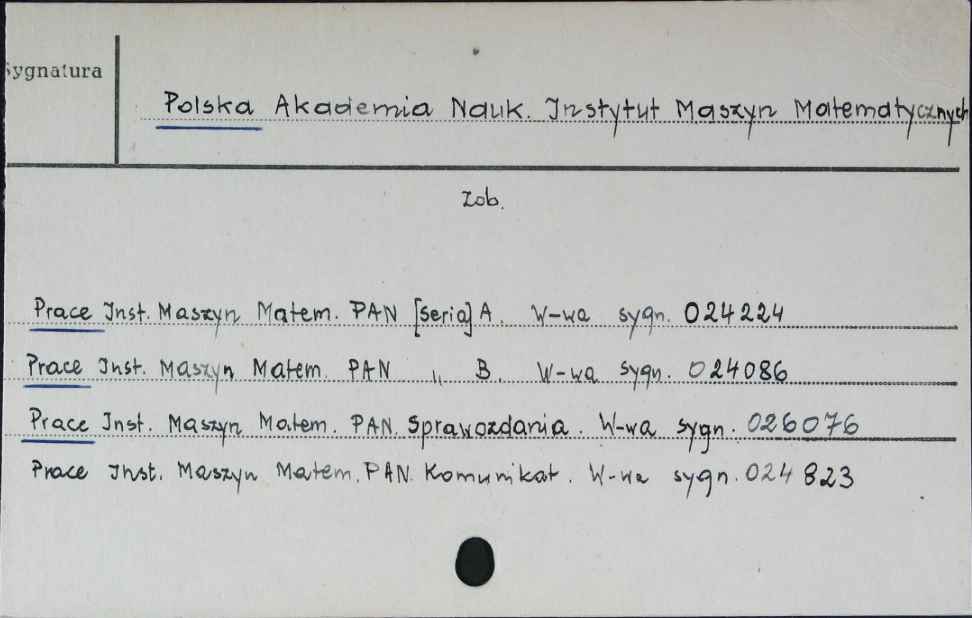 Sygnatura
Polska Akademia Nauk. Instytut Maszyn Matematycznych
zob.
Prace Inst. Maszyn Matem. PAN [Seria] A. W-wa sygn. 024224
Prace Inst. Maszyn Matem. PAN „ B. W-wa sygn. 024086
Prace Inst. Maszyn Matem. PAN. Sprawozdania. W-wa sygn. 026076
Prace Inst. Maszyn Matem. PAN. Komunikat. W-wa sygn. 024823